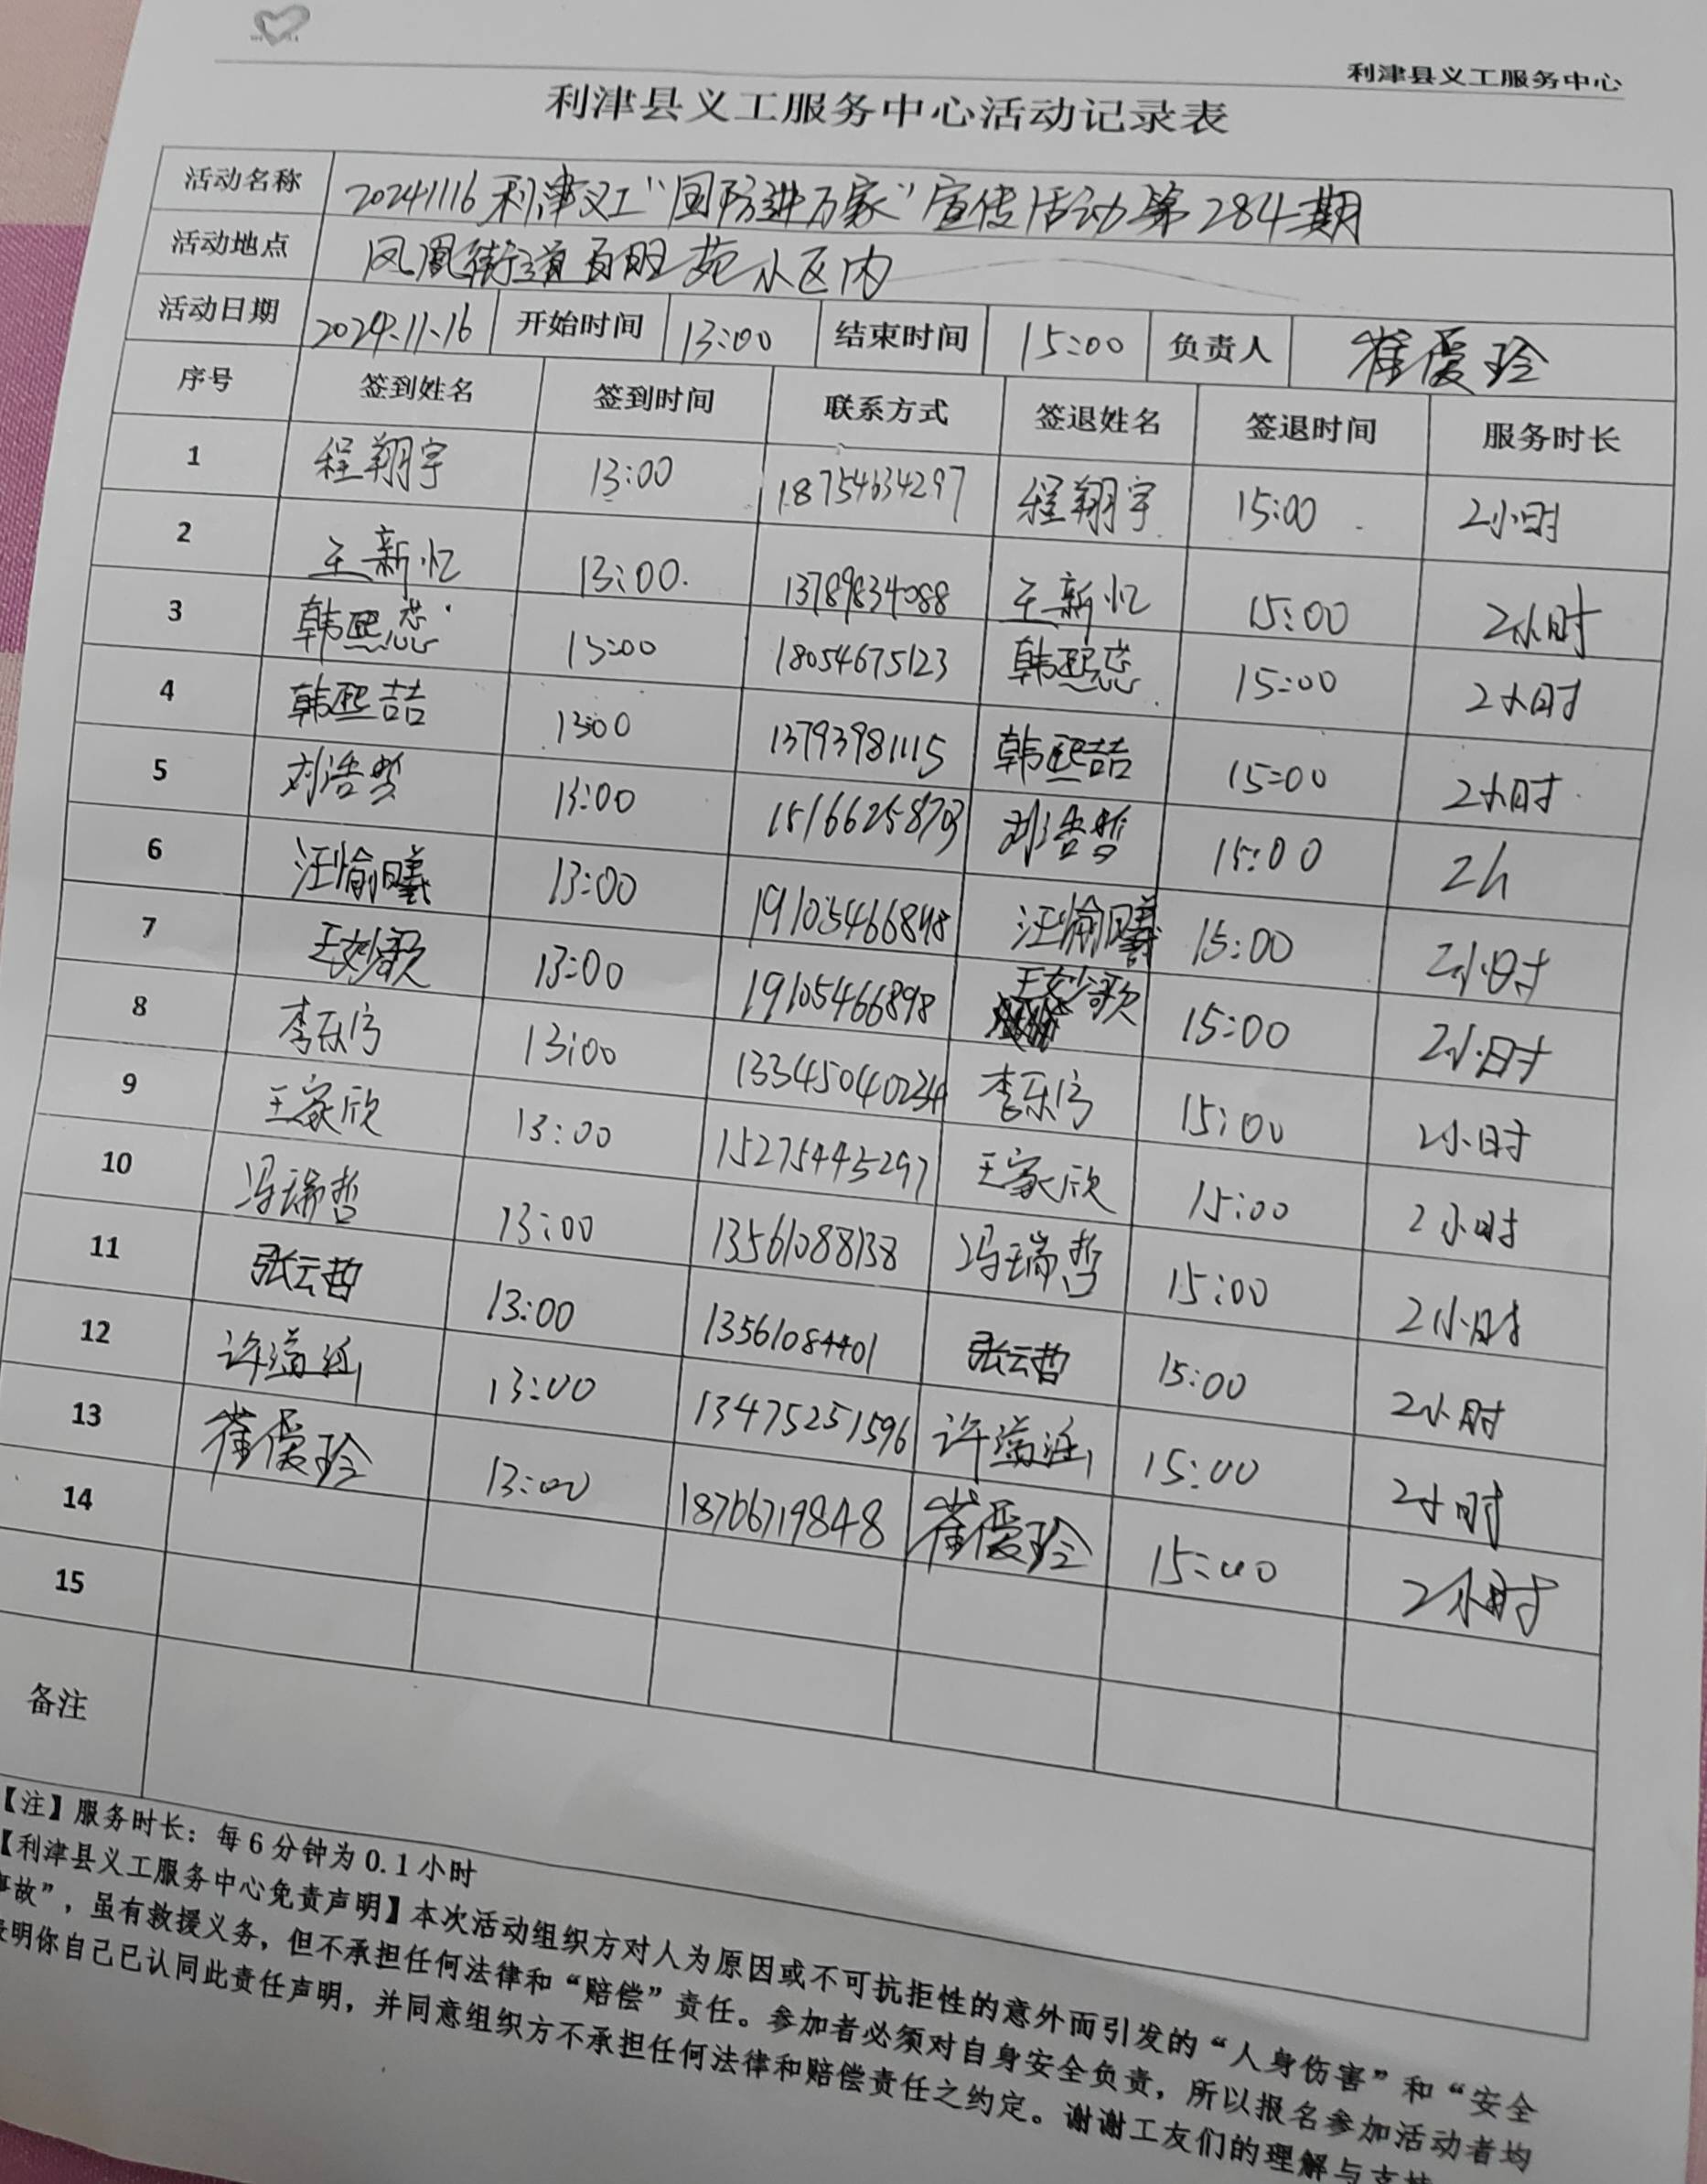 利津县义工服务中心
利津县义工服务中心活动记录表
活动名称 20241116利津义工“国防进万家”宣传活动第284期
活动地点 凤凰街道百旺苑小区内
活动日期 2024.11.16 开始时间 13:00 结束时间 15:00 负责人 崔爱玲
序号 签到姓名 签到时间 联系方式 签退姓名 签退时间 服务时长
1 程翔宇 13:00 18754634297 程翔宇 15:00 2小时
2 王新忆 13:00. 13789834088 王新忆 15:00 2小时
3 韩熙蕊 13:00 18054675123 韩熙蕊 15:00 2小时
4 韩熙喆 13:00 13793981115 韩熙喆 15:00 2小时
5 刘浩哲 13:00 15166258703 刘浩哲 15:00 2h
6 汪愉曦 13:00 19105466898 汪愉曦 15:00 2小时
7 王妙歌 13:00 19105466898 王妙歌 15:00 2小时
8 李乐 13:00 李乐 15:00 2小时
9 王家欣 13:00 15275445297 王家欣 15:00 2小时
10 冯瑞哲 13:00 13561088138 冯瑞哲 15:00 2小时
11 张云哲 13:00 13561084401 张云哲 15:00 2小时
12 许 13:00 13475251596 许 15:00 2小时
13 崔爱玲 13:00 18706719848 崔爱玲 15:00 2小时
14
15
备注
【注】服务时长：每6分钟为0.1小时
【利津县义工服务中心免责声明】本次活动组织方对人为原因或不可抗拒性的意外而引发的“人身伤害”和“安全
事故”，虽有救援义务，但不承担任何法律和“赔偿”责任。参加者必须对自身安全负责，所以报名参加活动者均
表明你自己已认同此责任声明，并同意组织方不承担任何法律和赔偿责任之约定。谢谢工友们的理解与支持